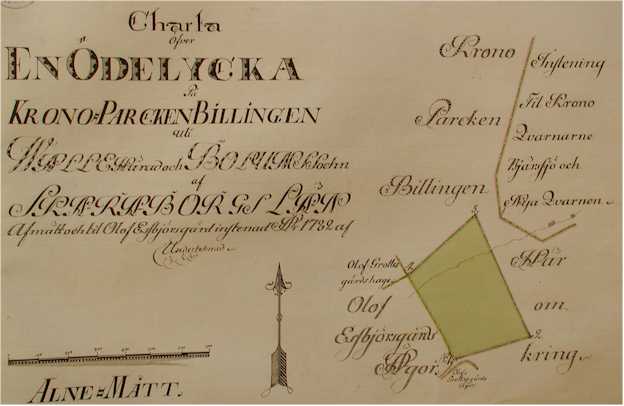 Charta
öfver
EN ÖDELYCKA
På
KRONO=PARCKEN BILLINGEN
uti
WALLE Härad och BOLUMS Sochn
af
SKARABORGS LÄHN
Afmätt och til Olof Esbjörsgård instenad Åhr 1782 af
Undertecknad
ALNE=MÅTT.
Krono
Parcken
Billingen
Instening
Til Krono
Qvarnarne
Bjärsjö och
Nya Qvarnen
3.
4.
2.
Olof Grolle
gårds hage
Olof
Esbjörsgårds
Ägor
Här
om
kring